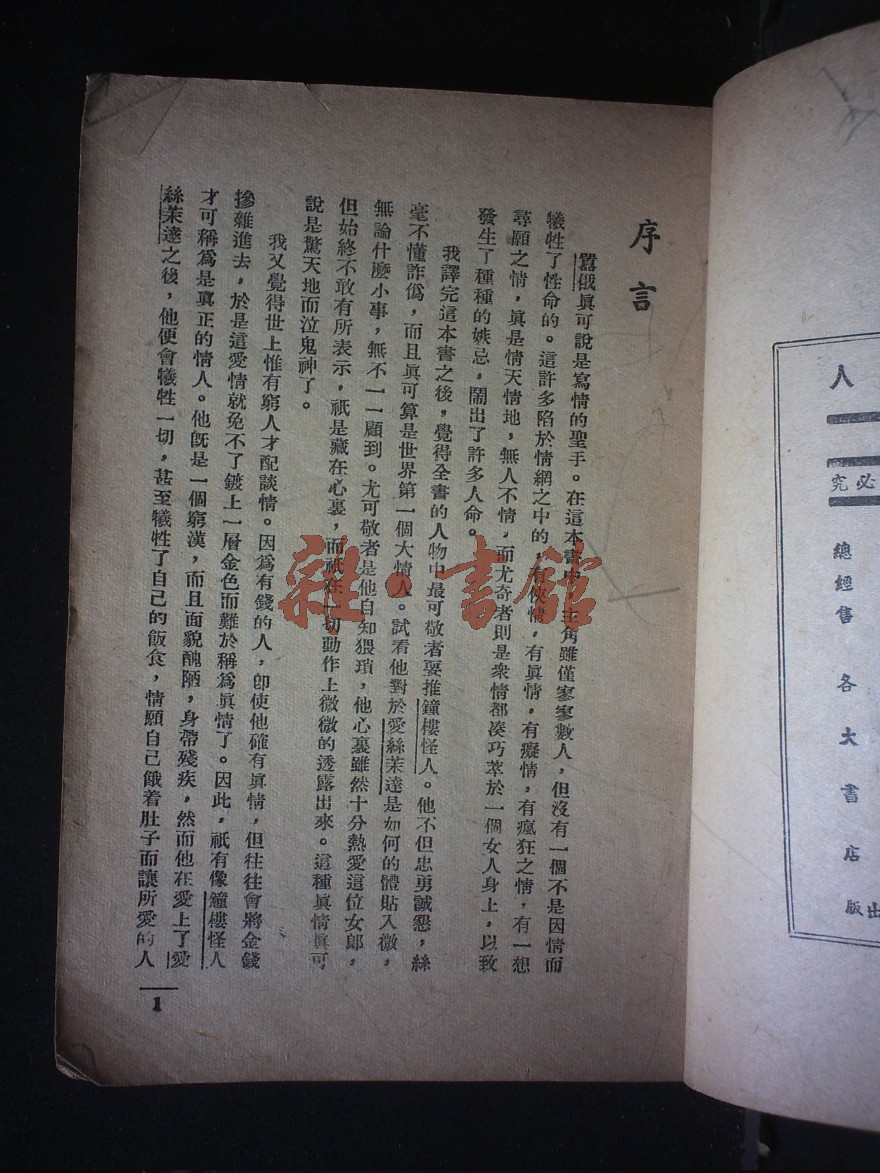 序言
囂俄眞可說是寫情的聖手。在這本書中，主角雖僅寥寥數人，但沒有一個不是因情而
犧牲了性命的。這許多陷於情網之中的，有俠情，有眞情，有癡情，有瘋狂之情，有一想
尋願之情，眞是情天情地，無人不情，而尤奇者則是衆情都湊巧萃於一個女人身上，以致
發生了種種的嫉忌，鬧出了許多人命。
我譯完這本書之後，覺得全書的人物中最可敬者要推鐘樓怪人。他不但忠勇誠懇，絲
毫不懂詐僞，而且眞可算是世界第一個大情人。試看他對於愛絲茉達是如何的體貼入微，
無論什麽小事，無不一一顧到。尤可敬者是他自知猥瑣，他心裏雖然十分熱愛這位女郞，
但始終不敢有所表示，祇是藏在心裏，而祇在一切動作上微微的透露出來。這種眞情眞可
說是驚天地而泣鬼神了。
我又覺得世上惟有窮人才配談情。因爲有錢的人，卽使他確有眞情，但往往會將金錢
摻雜進去，於是這愛情就免不了鍍上一層金色而難於稱爲眞情了。因此，祇有像鐘樓怪人
才可稱爲是眞正的情人。他旣是一個窮漢，而且面貌醜陋，身帶殘疾，然而他在愛上了愛
絲茉達之後，他便會犧牲一切，甚至犧牲了自己的飯食，情願自己餓着肚子而讓所愛的人
1
人
必究
總經售 各大書店
出版
雜·書館